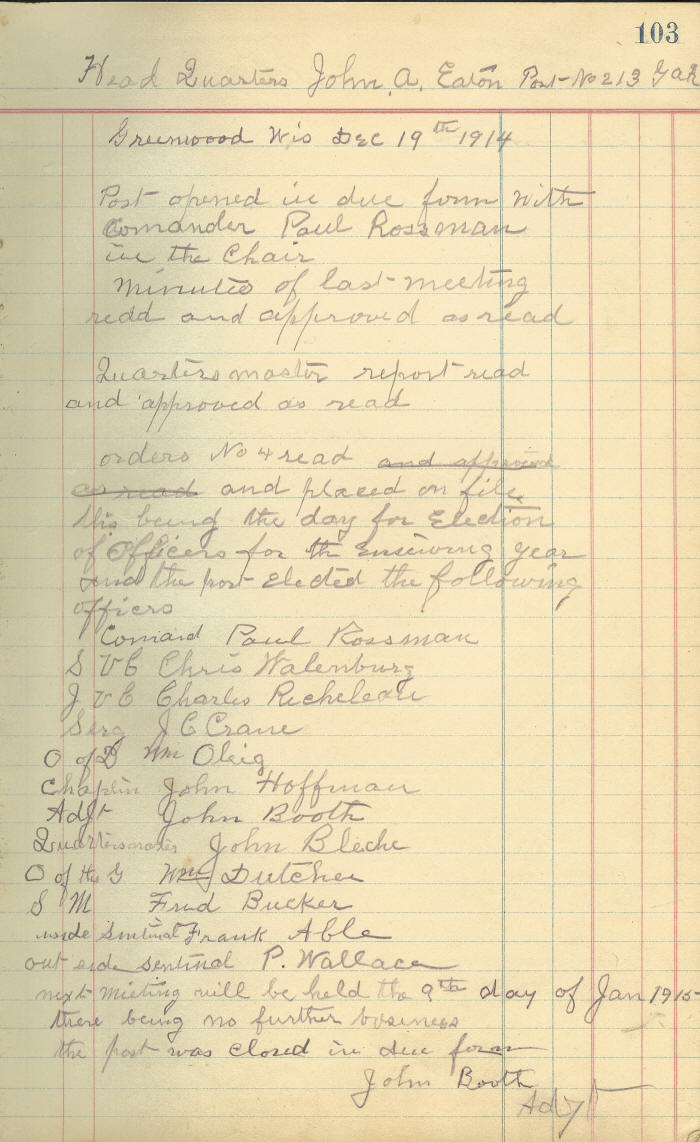 103
Head Quarters John A. Eaton Post No 213 GAR
Greenwood Wis Dec 19th 1914
Post opened in due form with
Comander Paul Rossman
in the Chair
minutes of last meeting
redd and approved as read
Quartersmaster report read
and approved as read
orders No 4 read and approved
as read and placed on file
this being the day for Election
of Officers for the Ensewing year
and the post Elected the following
officers
Comard Paul Rossman
S V C Chris Walenburg
J V C Charles Richeleau
Serg J C Crane
O of D Wm Oleig
Chaplin John Hoffman
Adjt John Booth
Quartersmaster John Bleche
O of the G Wm Dutcher
S M Fred Bucker
inside Sentinal Frank Able
out side sentinal P. Wallace
next Meeting will be held the 9th day of Jan 1915
there being no further bosiness
the post was closed in due form
John Booth
Adjt